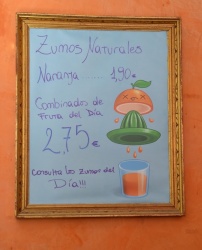 Zumos Naturales
Naranja ....... 1,90€
Combinados de
Fruta del Día
2,75€
Consulta los Zumos del
Día!!!